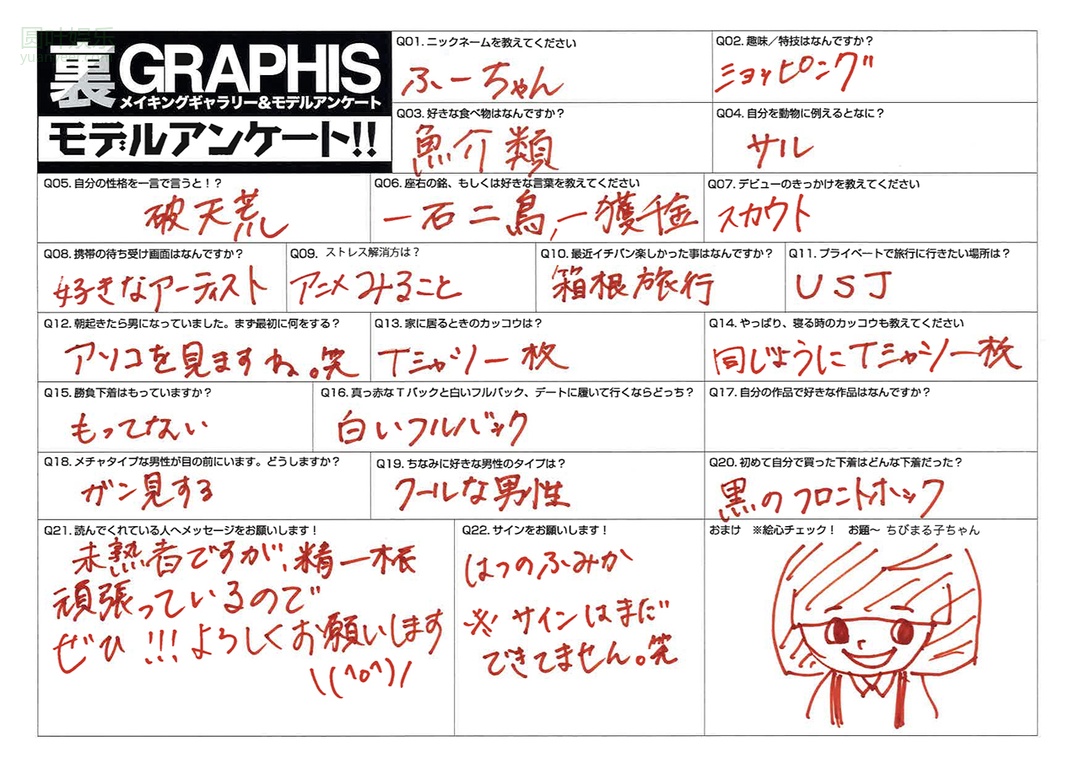 圆叶娱乐
裏GRAPHIS
メイキングギャラリー&モデルアンケート
モデルアンケート!!
Q01. ニックネームを教えてください
ふーちゃん
Q02. 趣味／特技はなんですか？
ショッピング
Q03. 好きな食べ物はなんですか？
魚介類
Q04. 自分を動物に例えるとなに？
サル
Q05. 自分の性格を一言で言うと！？
破天荒
Q06. 座右の銘、もしくは好きな言葉を教えてください
一石二鳥,一獲千金
Q07. デビューのきっかけを教えてください
スカウト
Q08. 携帯の待ち受け画面はなんですか？
好きなアーティスト
Q09. ストレス解消方は？
アニメみること
Q10. 最近イチバン楽しかった事はなんですか？
箱根旅行
Q11. プライベートで旅行に行きたい場所は？
USJ
Q12. 朝起きたら男になっていました。まず最初に何をする？
アソコを見ますね。笑
Q13. 家に居るときのカッコウは？
Tシャツ一枚
Q14. やっぱり、寝る時のカッコウも教えてください
同じようにTシャツ一枚
Q15. 勝負下着はもっていますか？
もってない
Q16. 真っ赤なTバックと白いフルバック、デートに履いて行くならどっち？
白いフルバック
Q17. 自分の作品で好きな作品はなんですか？
Q18. メチャタイプな男性が目の前にいます。どうしますか？
ガン見する
Q19. ちなみに好きな男性のタイプは？
クールな男性
Q20. 初めて自分で買った下着はどんな下着だった？
黒のフロントホック
Q21. 読んでくれている人へメッセージをお願いします！
未熟者ですが、精一根
頑張っているので
ぜひ!!!よろしくお願いします
\\(^o^)/
Q22. サインをお願いします！
はつのふみか
※サインはまだ
できてません。笑
おまけ ※絵心チェック！ お題〜 ちびまる子ちゃん